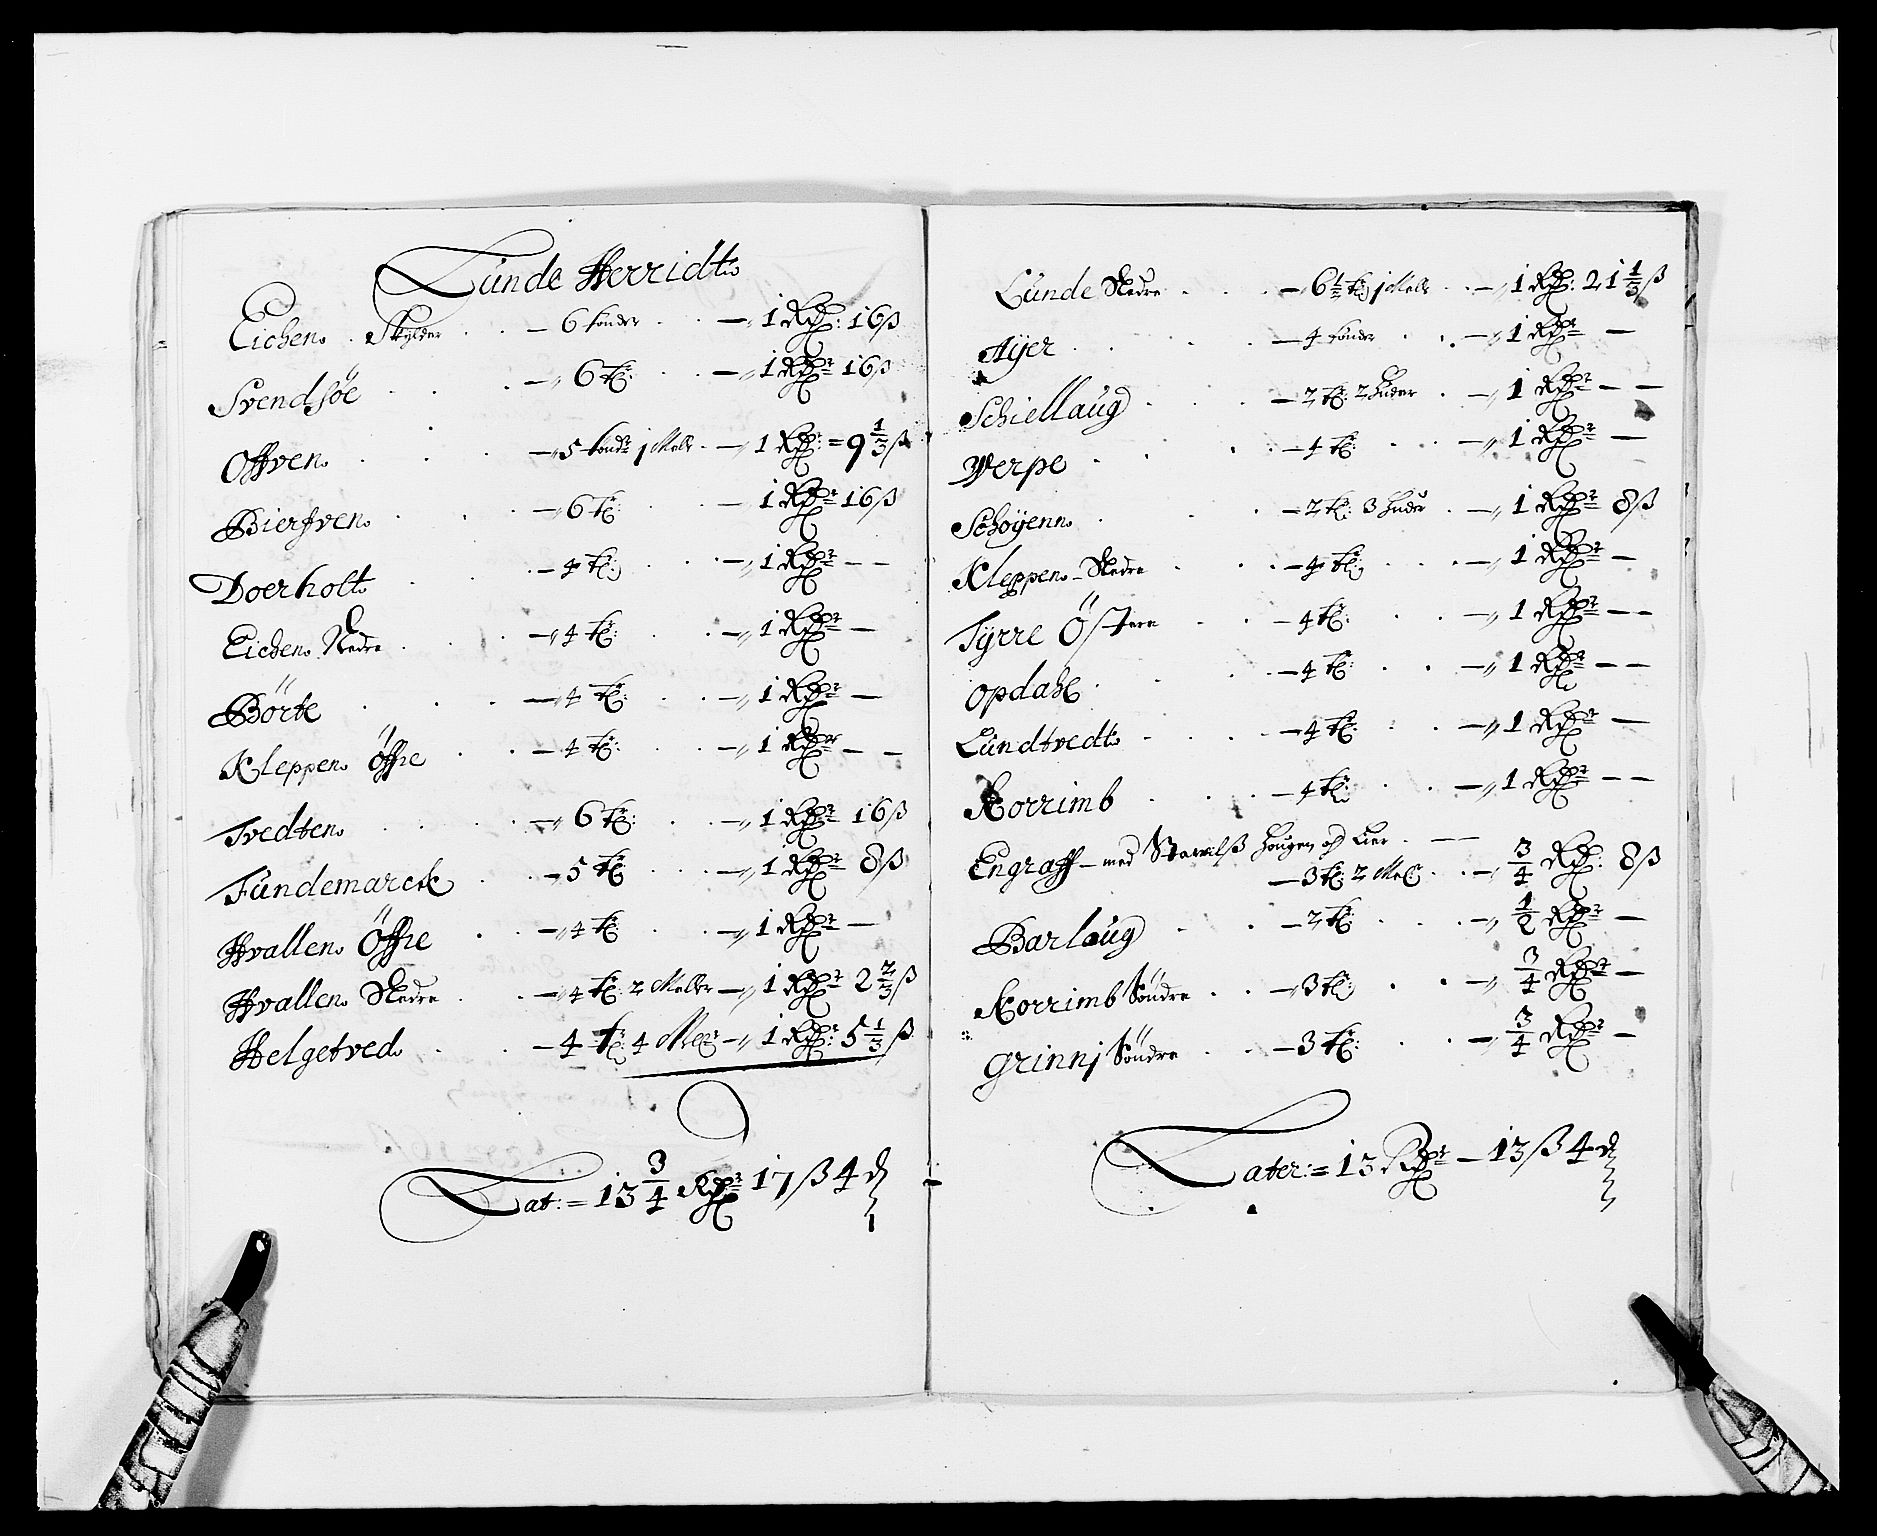 Lunde Herridt
Eichen Skylder — 6 tønder — 1 Rdr: 16 ß
Svendsöe — 6 tr: — 1 Rdr 16 ß
Offven — 5 tønd. 1 Mele — 1 Rdr: = 9 1/3 ß
Bierfven — 6 tr: — 1 Rdr 16 ß
Doerholt — 4 tr: — 1 Rdr — —
Eichen Nedre — 4 tr: — 1 Rdr —
Börte — 4 tr: — 1 Rdr —
Kleppen Öffre — 4 tr: — 1 Rdr — —
Tvedten — 6 tr: — 1 Rdr 16 ß
Fundemarck — 5 tr: — 1 Rdr 8 ß
Hvallen Öffre — 4 tr: — 1 Rdr —
Hvallen Nedre — 4 tr: 2 Meler — 1 Rdr 2 2/3 ß
Helgetved — 4 tr: 4 Meler — 1 Rdr: 5 1/3 ß
Lat: = 13 3/4 Rdr 17 ß 4 d
Lunde Nedre — 6 1/2 tr 1 Mele — 1 Rdr: 21 1/3 ß
Ayer — 4 tønder — 1 Rdr —
Schiellaug — 2 tr: 2 huder — 1 Rdr — —
Verpe — 4 tr: — 1 Rdr —
Schöyenn — 2 tr: 3 huder — 1 Rdr 8 ß
Kleppen Nedre — 4 tr: — 1 Rdr —
Tyrre Östere — 4 tr: — 1 Rdr — —
Opdahl — 4 tr: — 1 Rdr — —
Lundtvedt — 4 tr: — 1 Rdr —
Korrimb — 4 tr: — 1 Rdr — —
Engraff — med haugen og Lier — —
— 3 tr: 2 Mel: — 3/4 Rdr: 8 ß
Barlaug — 2 tr: — 1/2 Rdr —
Korrimb Söndre — 3 tr: — 3/4 Rdr —
Grinnj Söndre — 3 tr: — 3/4 Rdr —
Later: = 13 Rdr — 13 ß 4 d